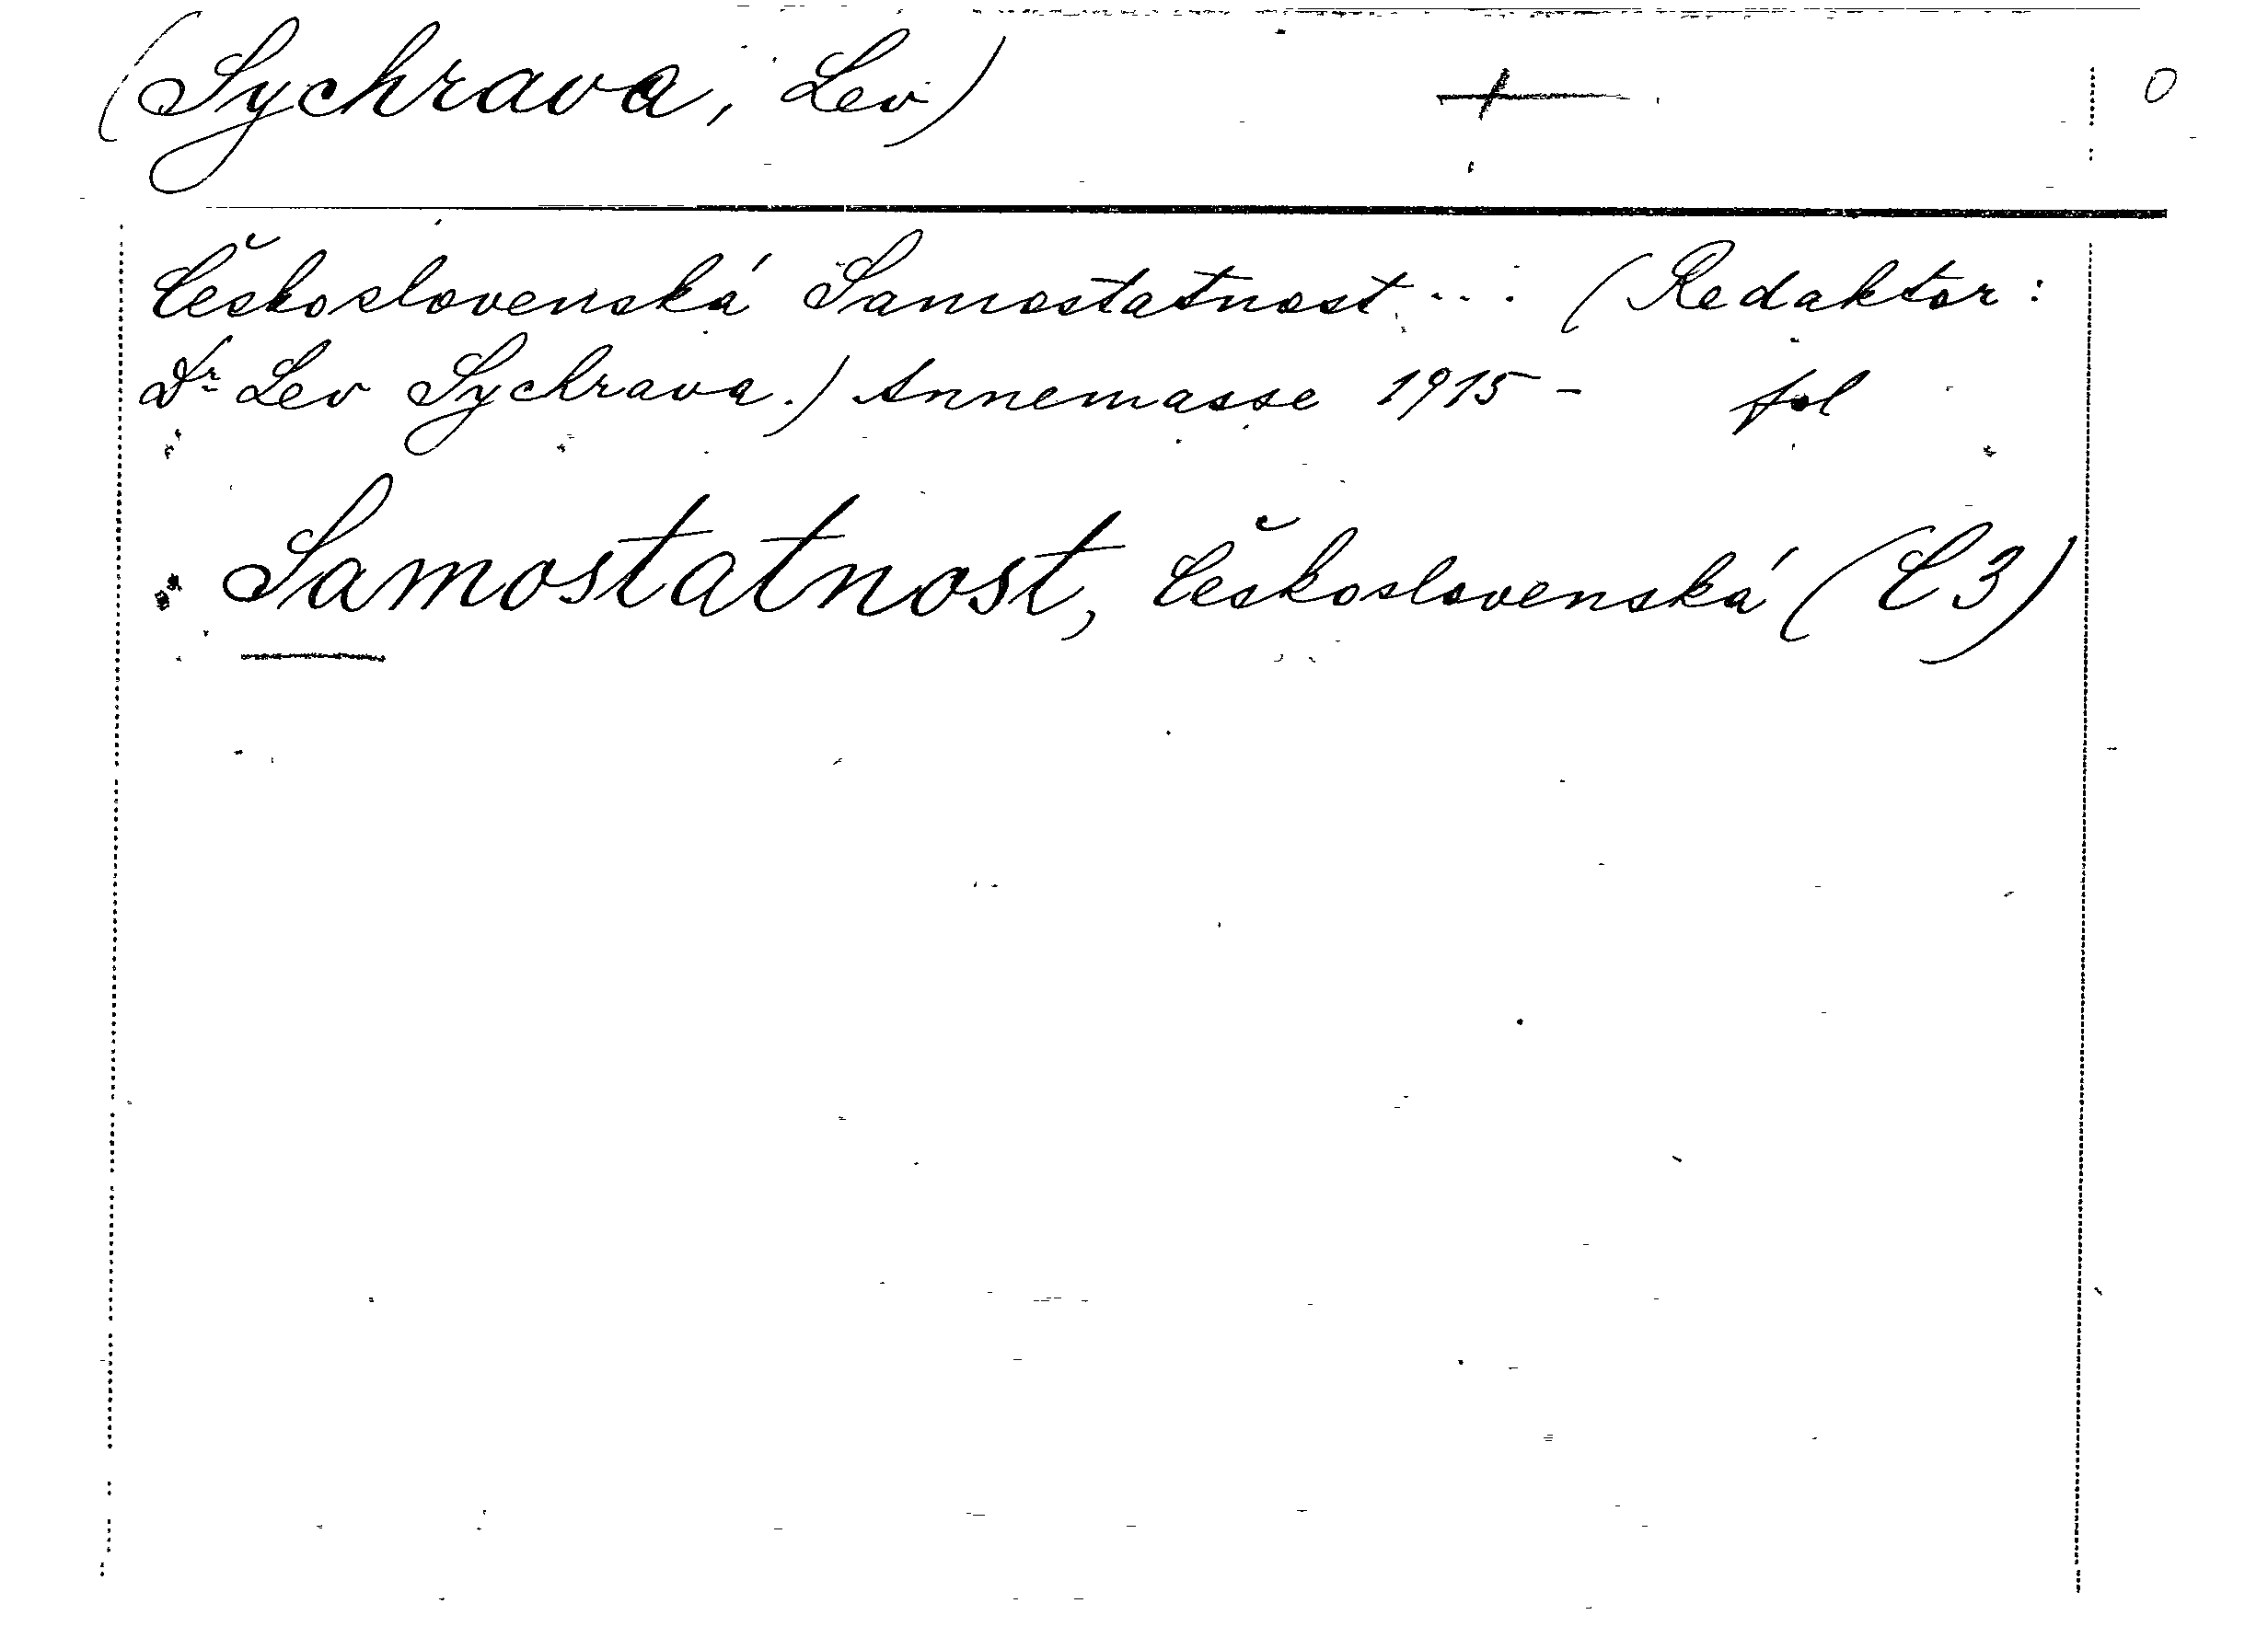 (Sychrava, Lev) + 0
Československá Samostatnost... (Redaktor:
Dr Lev Sychrava.) Annemasse 1915 - fol
Samostatnost, Československá (C3)